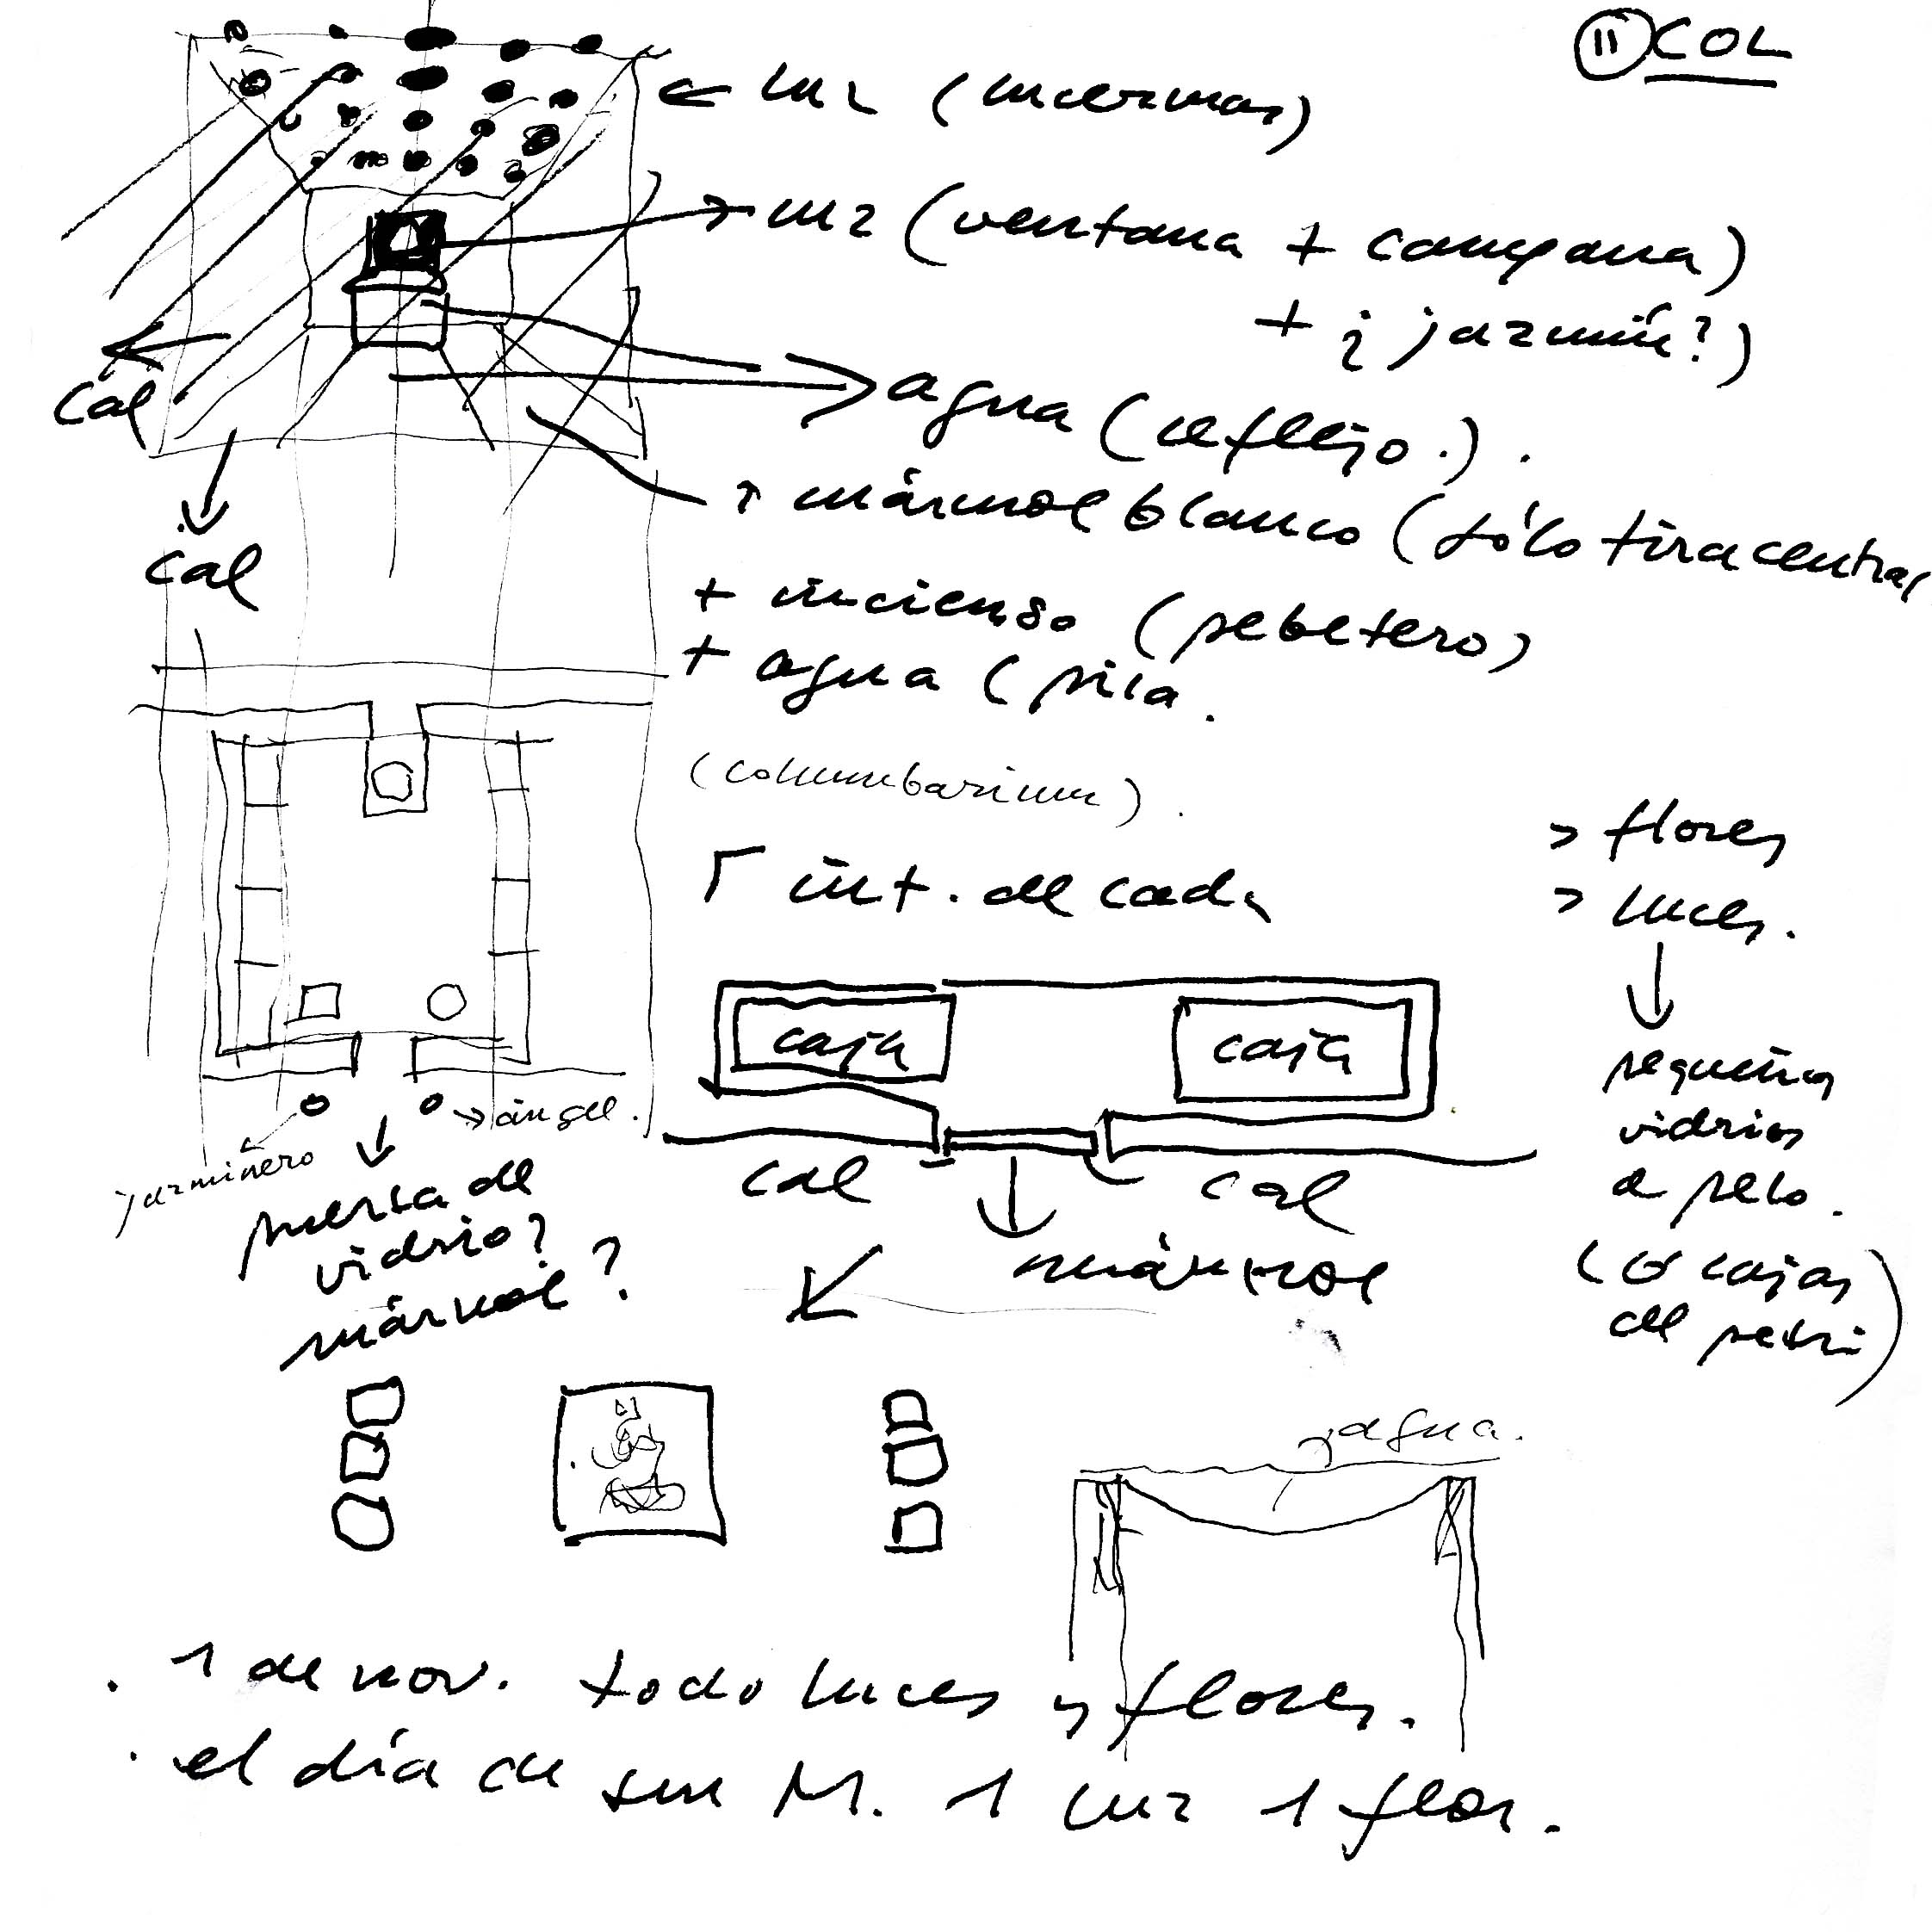 11 COL
← luz (lucernas)
→ luz (ventana + campana)
+ ¿jazmín?)
agua (reflejo.).
cal
mármol blanco (sólo tira central
cal
+ incienso (pebetero)
+ agua (pila.
(columbarium).
int. de cada
> flores
> luces.
caja
caja
pequeños
vidrios
a pelo.
(o cajas
de petri)
→ ángel.
jazmíñero
cal
cal
mármol
puerta de
vidrio?
mármol?
agua.
. 1 de nov. todo luces y flores.
. el día de su M. 1 luz 1 flor.